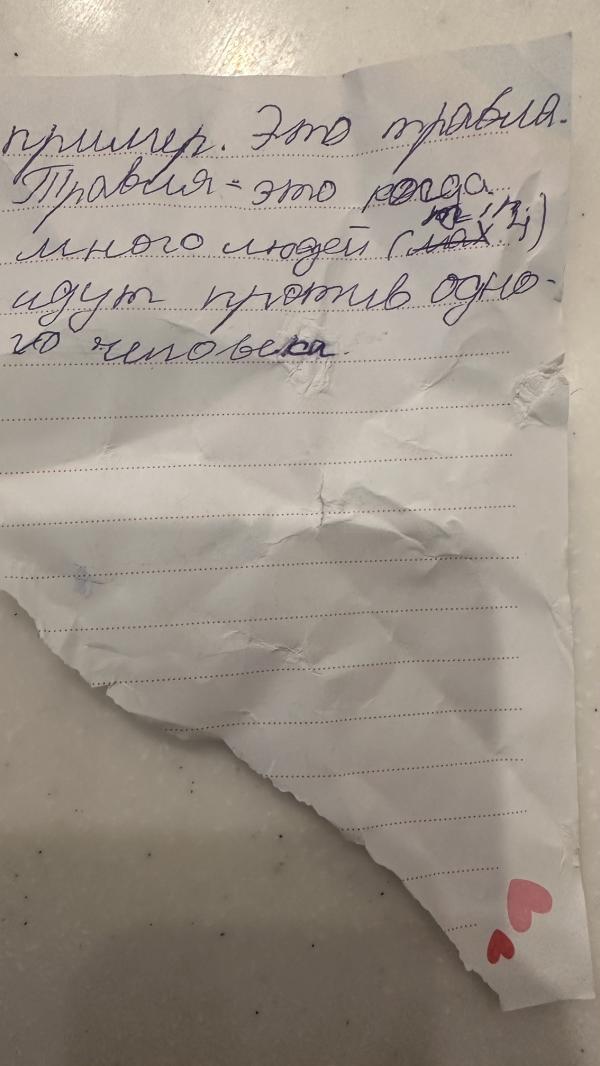 пример. Это травля.
Травля - это когда
много людей (min 4)
идут против одно-
го человека.